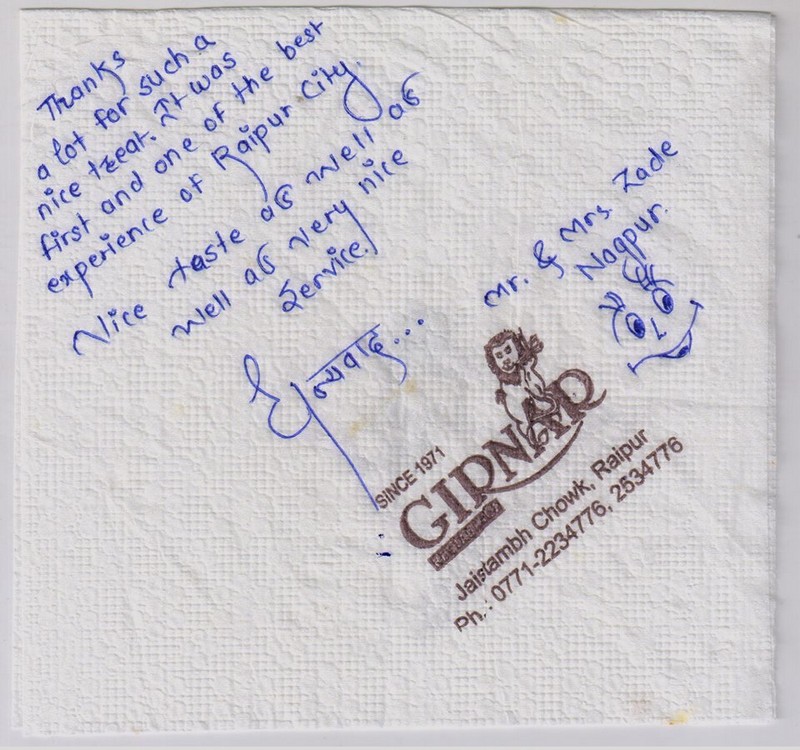 Thanks
a lot for such a
nice treat. It was
first and one of the best
experience of Raipur City.
Nice taste as well as
well as very nice
Service.
धन्यवाद...
Mr. & Mrs. Zade
Nagpur.
SINCE 1971
GIRNAR
Jaistambh Chowk, Raipur
Ph.: 0771-2234776, 2534776